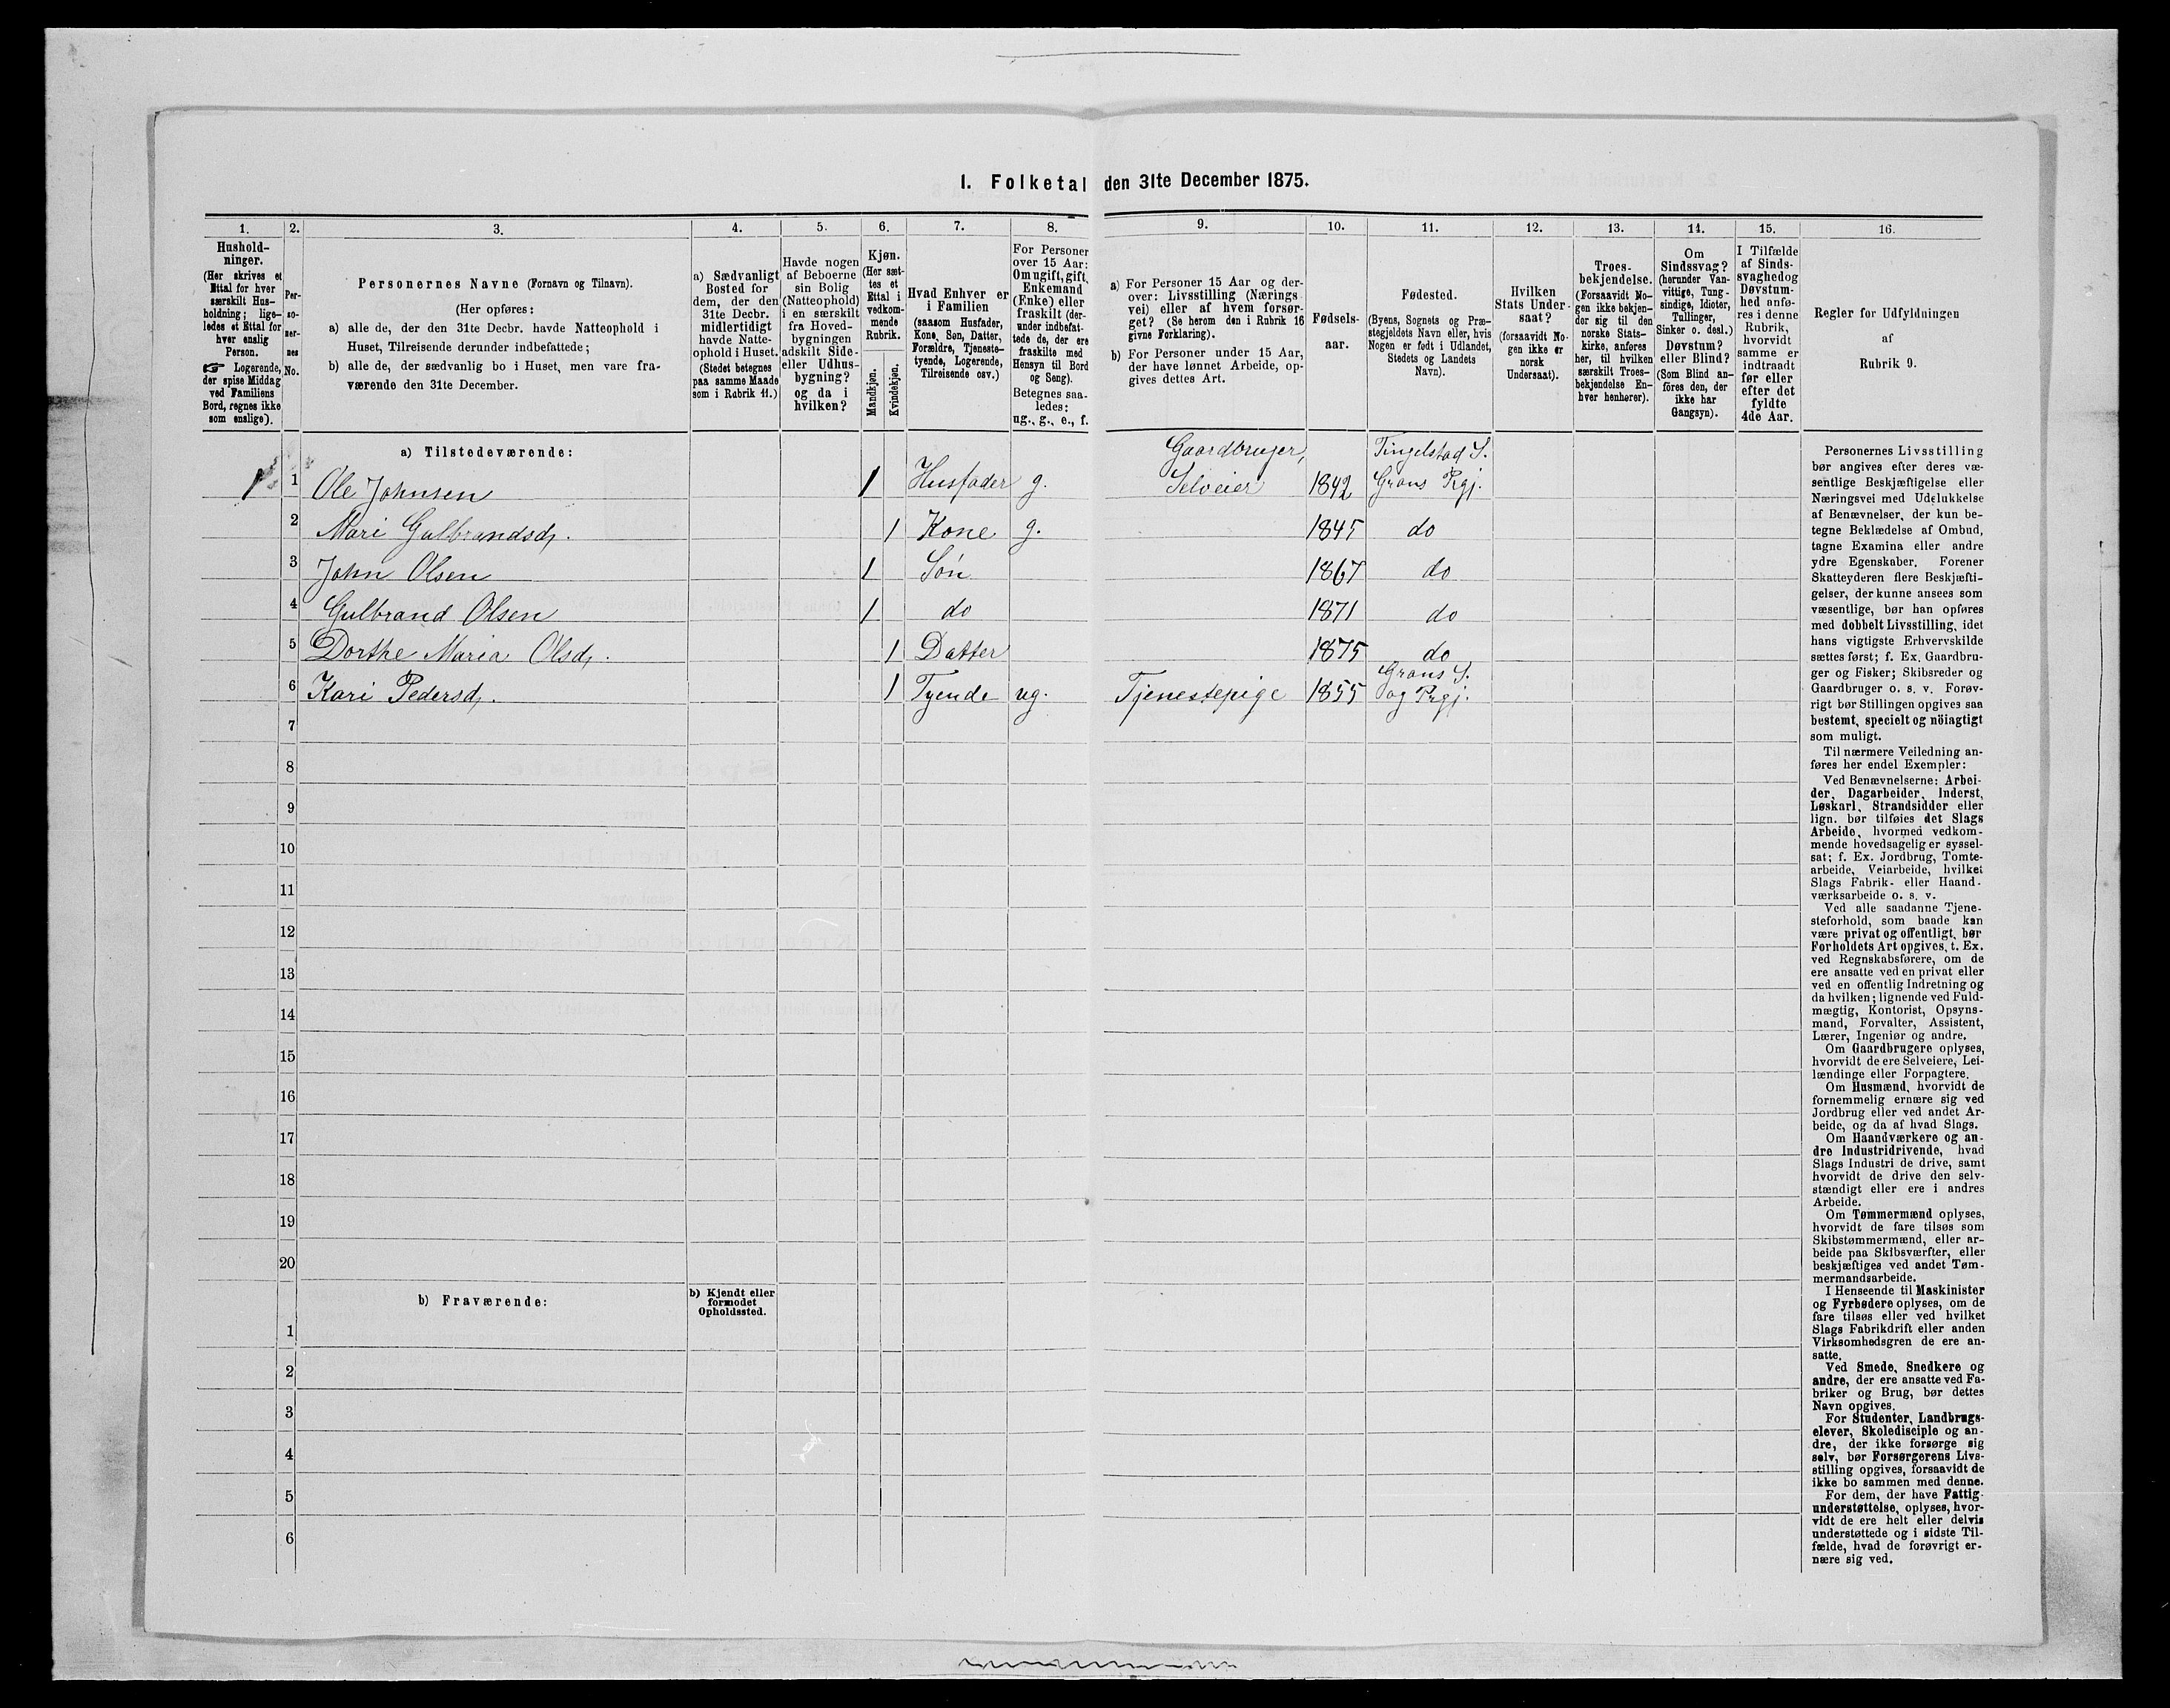 I. Folketal den 31te December 1875.
1. 2. 3. 4. 5. 6. 7. 8. 9. 10. 11. 12. 13. 14. 15. 16.
Hushold-
ninger.
(Her skrives et
Ettal for hver
særskilt Hus-
holdning; lige-
ledes et Ettal for
hver enslig
Person.
☞ Logerende,
der spise Middag
ved Familiens
Bord, regnes ikke
som enslige).
Per-
so-
ner-
nes
No.
Personernes Navne (Fornavn og Tilnavn).
(Her opføres:
a) alle de, der den 31te Decbr. havde Natteophold i
Huset, Tilreisende derunder indbefattede;
b) alle de, der sædvanlig bo i Huset, men vare fra-
værende den 31te December.
a) Sædvanligt
Bosted for
dem, der den
31te Decbr.
midlertidigt
havde Natte-
ophold i Huset.
(Stedet betegnes
paa samme Maade
som i Rubrik 11.)
Havde nogen
af Beboerne
sin Bolig
(Natteophold)
i en særskilt
fra Hoved-
bygningen
adskilt Side-
eller Udhus-
bygning?
og da i
hvilken?
Kjøn.
(Her sæt-
tes et
Ettal i
vedkom-
mende
Rubrik.
Mandkjøn.
Kvindekjøn.
Hvad Enhver er
i Familien
(saasom Husfader,
Kone, Søn, Datter,
Forældre, Tjeneste-
tyende, Logerende,
Tilreisende osv.)
For Personer
over 15 Aar:
Om ugift, gift,
Enkemand
(Enke) eller
fraskilt (der-
under indbefat-
tede de, der ere
fraskilte med
Hensyn til Bord
og Seng).
Betegnes saa-
ledes:
ug., g., e., f.
a) For Personer 15 Aar og der-
over: Livsstilling (Nærings-
vei) eller af hvem forsør-
get? (Se herom den i Rubrik 16
givne Forklaring).
b) For Personer under 15 Aar,
der have lønnet Arbeide, op-
gives dettes Art.
Fødsels-
aar.
Fødested.
(Byens, Sognets og Præ-
stegjeldets Navn eller, hvis
Nogen er født i Udlandet,
Stedets og Landets
Navn).
Hvilken
Stats Under-
saat?
(forsaavidt No-
gen ikke er
norsk
Undersaat).
Troes-
bekjendelse.
(Forsaavidt No-
gen ikke bekjen-
der sig til den
norske Stats-
kirke, anføres
her, til hvilken
særskilt Troes-
bekjendelse En-
hver henhører).
Om
Sindssvag?
(herunder Van-
vittige, Tung-
sindige, Idioter,
Tullinger,
Sinker o. desl.)
Døvstum?
eller Blind?
(Som Blind an-
føres den, der
ikke har
Gangsyn).
I Tilfælde
af Sinds-
svaghed og
Døvstum-
hed anfø-
res i denne
Rubrik,
hvorvidt
samme er
indtraadt
før eller
efter det
fyldte
4de Aar.
Regler for Udfyldningen
af
Rubrik 9.
a) Tilstedeværende:
1 1 Ole Johnsen 1 Husfader g. Gaardbruger, Selveier 1842 Tingelstad S. Grans Prgj.
2 Mari Gulbrandsd. 1 Kone g. 1845 do
3 John Olsen 1 Søn 1867 do
4 Gulbrand Olsen 1 do 1871 do
5 Dorthe Maria Olsd. 1 Datter 1875 do
6 Kari Pedersd. 1 Tyende ug. Tjenestepige 1855 Grans S. og Prgj.
7
8
9
10
11
12
13
14
15
16
17
18
19
20
b) Fraværende:
b) Kjendt eller
formodet
Opholdssted.
1
2
3
4
5
6
Personernes Livsstilling
bør angives efter deres væ-
sentlige Beskjæftigelse eller
Næringsvei med Udelukkelse
af Benævnelser, der kun be-
tegne Beklædelse af Ombud,
tagne Examina eller andre
ydre Egenskaber. Forener
Skatteyderen flere Beskjæfti-
gelser, der kunne ansees som
væsentlige, bør han opføres
med dobbelt Livsstilling, idet
hans vigtigste Erhvervskilde
sættes først; f. Ex. Gaardbru-
ger og Fisker; Skibsreder og
Gaardbruger o. s. v. Forøv-
rigt bør Stillingen opgives saa
bestemt, specielt og nöiagtigt
som muligt.
Til nærmere Veiledning an-
føres her endel Exempler:
Ved Benævnelserne: Arbei-
der, Dagarbeider, Inderst,
Løskarl, Strandsidder eller
lign. bør tilføies det Slags
Arbeide, hvormed vedkom-
mende hovedsagelig er syssel-
sat; f. Ex. Jordbrug, Tomte-
arbeide, Veiarbeide, hvilket
Slags Fabrik- eller Haand-
værksarbeide o. s. v.
Ved alle saadanne Tjene-
steforhold, som baade kan
være privat og offentligt, bør
Forholdets Art opgives, t. Ex.
ved Regnskabsførere, om de
ere ansatte ved en privat eller
ved en offentlig Indretning og
da hvilken; lignende ved Fuld-
mægtig, Kontorist, Opsyns-
mand, Forvalter, Assistent,
Lærer, Ingeniør og andre.
Om Gaardbrugere oplyses,
hvorvidt de ere Selveiere, Lei-
lændinge eller Forpagtere.
Om Husmænd, hvorvidt de
fornemmelig ernære sig ved
Jordbrug eller ved andet Ar-
beide, og da af hvad Slags.
Om Haandværkere og an-
dre Industridrivende, hvad
Slags Industri de drive, samt
hvorvidt de drive den selv-
stændigt eller ere i andres
Arbeide.
Om Tømmermænd oplyses,
hvorvidt de fare tilsøs som
Skibstømmermænd, eller ar-
beide paa Skibsværfter, eller
beskjæftiges ved andet Tøm-
mermandsarbeide.
I Henseende til Maskinister
og Fyrbødere oplyses, om de
fare tilsøs eller ved hvilket
Slags Fabrikdrift eller anden
Virksomhedsgren de ere an-
satte.
Ved Smede, Snedkere og
andre, der ere ansatte ved Fa-
briker og Brug, bør dettes
Navn opgives.
For Studenter, Landbrugs-
elever, Skoledisciple og an-
dre, der ikke forsørge sig
selv, bør Forsørgerens Livs-
stilling opgives, forsaavidt de
ikke bo sammen med denne.
For dem, der have Fattig-
understøttelse, oplyses, hvor-
vidt de ere helt eller delvis
understøttede og i sidste Til-
fælde, hvad de forøvrigt er-
nære sig ved.